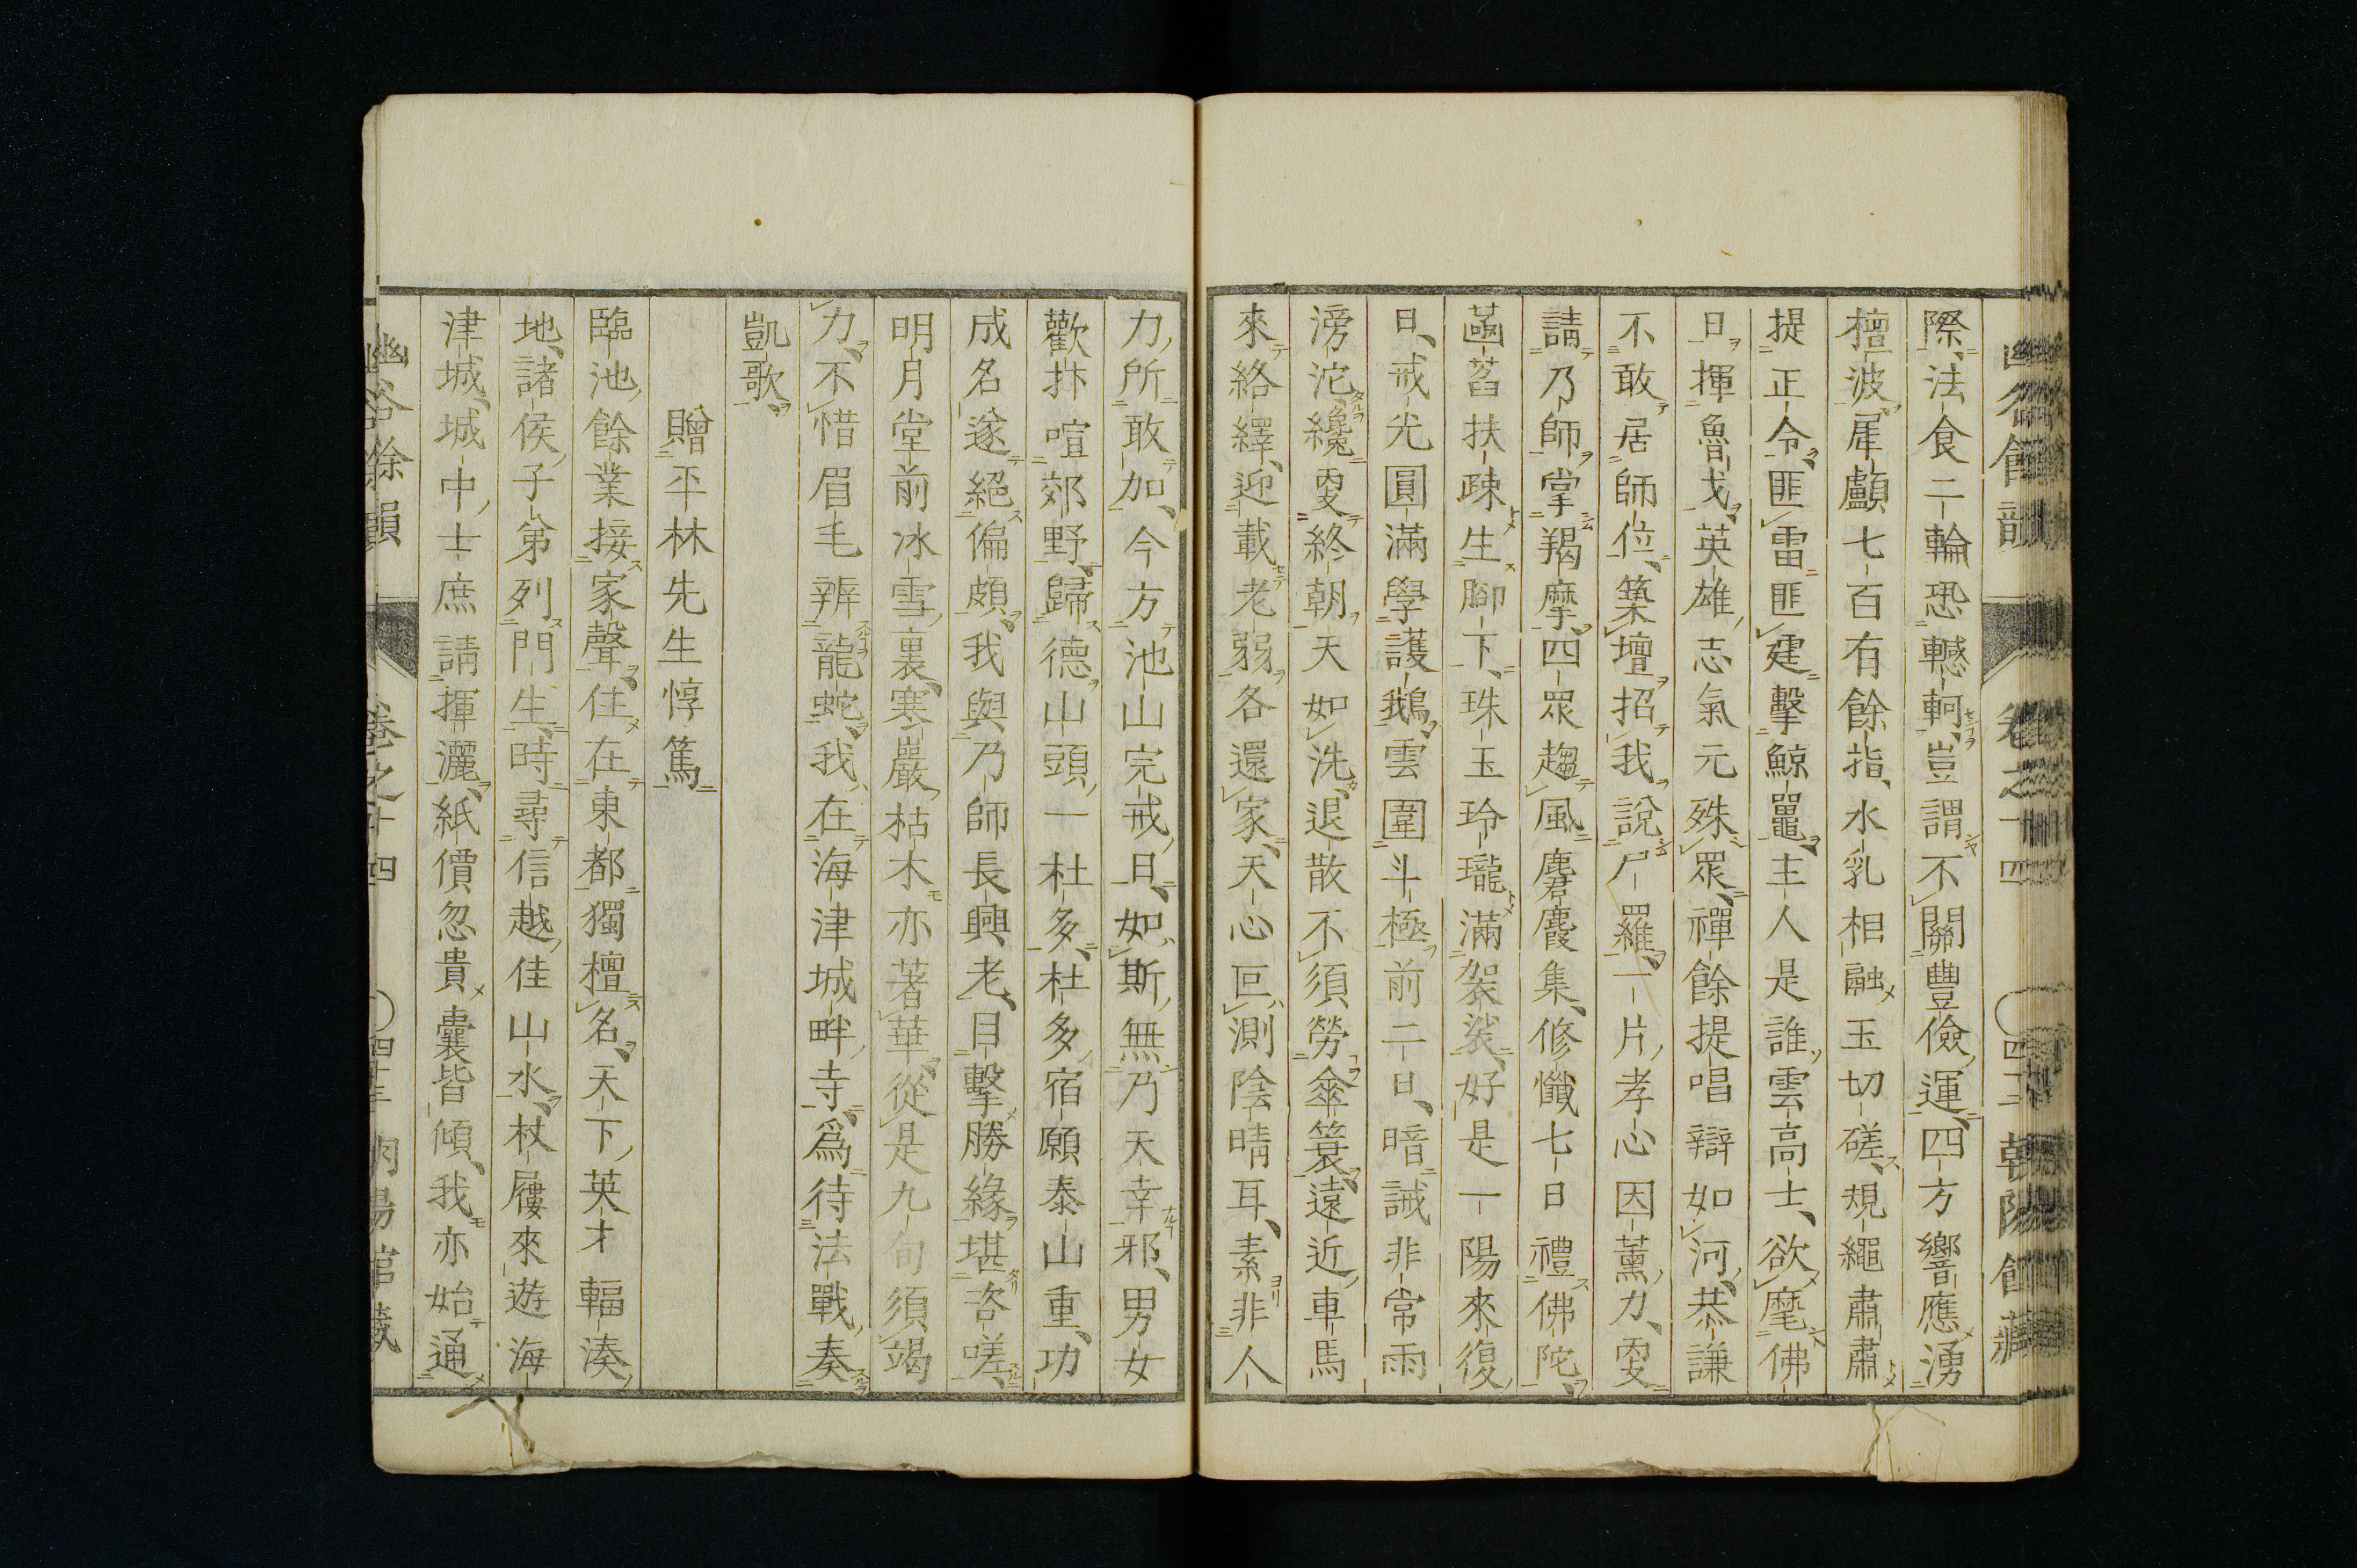 際法食二輪恐轗軻豈謂不關豐儉運四方響應湧
檀波犀顱七百有餘指水乳相融玉切磋規繩肅肅
提正令匪雷匪霆擊鯨鼉主人是誰雲高士欲麾佛
日揮魯戈英雄志氣元殊眾禪餘提唱辯如河恭謙
不敢居師位築壇招我說尸羅一片孝心因薰力雯
請乃師掌羯摩四眾趨風麏麚集修懺七日禮佛陀
菡萏扶疎生腳下珠玉玲瓏滿袈裟好是一陽來復
日戒光圓滿學護鵝雲圍斗極前二日暗誡非常雨
滂沱纔雯終朝天如洗退散不須勞傘簑遠近車馬
來絡繹迎載老弱各還家天心叵測陰晴耳素非人
力所敢加今方池山完戒日如斯無乃天幸邪男女
歡抃喧郊野歸德山頭一杜多杜多宿願泰山重功
成名遂絕偏頗我與乃師長興老目擊勝緣堪咨嗟
明月堂前冰雪裏寒巖枯木亦著華從是九旬須竭
力不惜眉毛辨龍蛇我在海津城畔寺為待法戰奏
凱歌
贈平林先生惇篤
臨池餘業接家聲住在東都獨檀名天下英才輻湊
地諸侯子弟列門生時尋信越佳山水杖屨來遊海
津城城中士庶請揮灑紙價忽貴囊皆傾我亦始通
幽谷餘韻 卷之十四 ○四十三 朝陽館藏